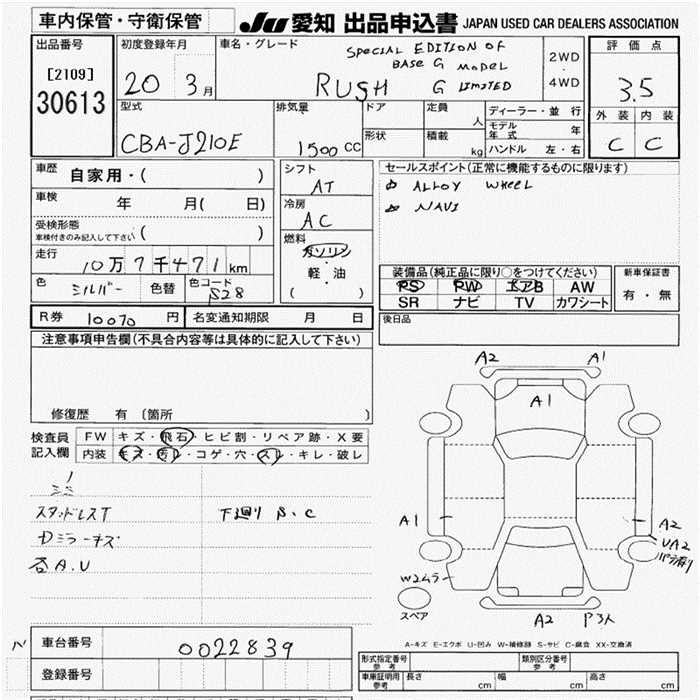 車内保管・守衛保管
JU 愛知 出品申込書 JAPAN USED CAR DEALERS ASSOCIATION
出品番号
[2109]
30613
初度登録年月
20 3月
車名・グレード
SPECIAL EDITION OF
BASE G MODEL
RUSH G LIMITED
2WD
・
4WD
評価点
3.5
外装 内装
C C
型式
CBA-J210E
排気量
1500 CC
ドア
定員
人
形状
積載
kg
ディーラー・並行
モデル年式 年
ハンドル 左・右
車歴 自家用・( )
車検 年 月( 日)
受検形態
車検付きのみ記入して下さい ( )
走行
10万7千471km
色 シルバー 色替 色コード S28
シフト
AT
冷房
AC
燃料
ガソリン
・
軽・油
( )
セールスポイント(正常に機能するものに限ります)
ALLOY WHEEL
NAVI
装備品(純正品に限り○をつけてください)
PS PW エアB AW
SR ナビ TV カワシート
新車保証書
有・無
R券 10070 円 名変通知期限 月 日
後日品
注意事項申告欄(不具合内容等は具体的に記入して下さい)
修復歴 有 〔箇所 〕
検査員
記入欄
FW キズ・飛石・ヒビ割・リペア跡・X要
内装 キズ・汚レ・コゲ・穴・スレ・キレ・破レ
スタッドレスT
下廻り S、C
Dミラーキズ
各A.U
A2 A1
A1
A1
A2
UA2
W2ムラ
スペア
A2
A-キズ E-エクボ U-凹み W-補修跡 S-サビ C-腐食 XX-交換済
車台番号 0022839
登録番号
形式指定番号
参考
類別区分番号
参考
車庫証明用
参考
長さ cm 幅 cm 高さ cm